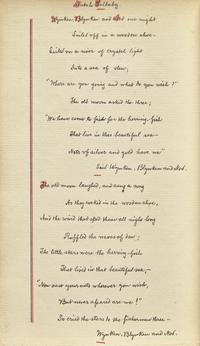 Dutch Lullaby.
Wynken, Blynken and Nod one night
Sailed off in a wooden shoe—
Sailed on a river of crystal light
Into a sea of dew;
"Where are you going and what do you wish?"
The old moon asked the three;
"We have come to fish for the herring-fish
That live in this beautiful sea—
Nets of silver and gold have we"
Said Wynken, Blynken and Nod.
The old moon laughed, and sang a song
As they rocked in the wooden shoe,
And the wind that sped them all night long
Ruffled the waves of dew;
The little stars were the herring-fish
That lived in that beautiful sea,—
"Now cast your nets wherever you wish,
But never afeard are we!"
So cried the stars to the fishermen three—
Wynken, Blynken and Nod.